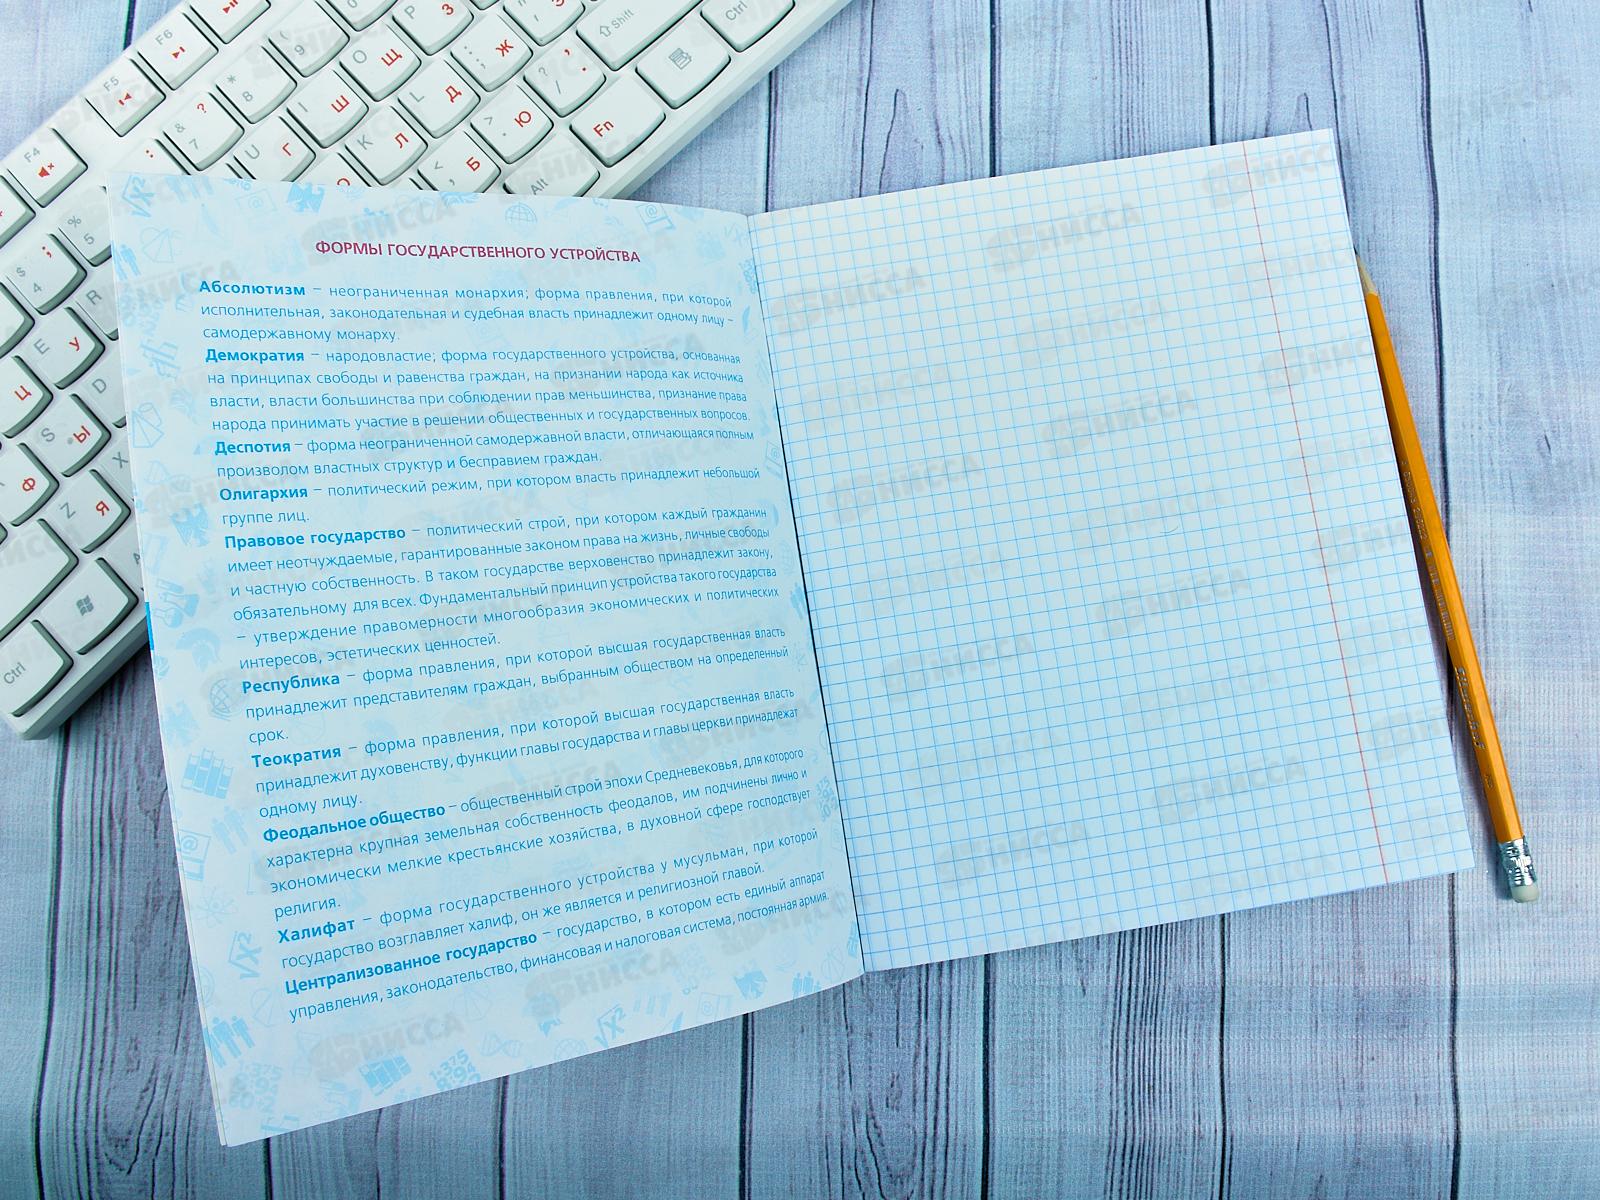 ФОРМЫ ГОСУДАРСТВЕННОГО УСТРОЙСТВА
Абсолютизм – неограниченная монархия; форма правления, при которой
исполнительная, законодательная и судебная власть принадлежит одному лицу –
самодержавному монарху.
Демократия – народовластие; форма государственного устройства, основанная
на принципах свободы и равенства граждан, на признании народа как источника
власти, власти большинства при соблюдении прав меньшинства, признание права
народа принимать участие в решении общественных и государственных вопросов.
Деспотия – форма неограниченной самодержавной власти, отличающаяся полным
произволом властных структур и бесправием граждан.
Олигархия – политический режим, при котором власть принадлежит небольшой
группе лиц.
Правовое государство – политический строй, при котором каждый гражданин
имеет неотчуждаемые, гарантированные законом права на жизнь, личные свободы
и частную собственность. В таком государстве верховенство принадлежит закону,
обязательному для всех. Фундаментальный принцип устройства такого государства
– утверждение правомерности многообразия экономических и политических
интересов, эстетических ценностей.
Республика – форма правления, при которой высшая государственная власть
принадлежит представителям граждан, выбранным обществом на определенный
срок.
Теократия – форма правления, при которой высшая государственная власть
принадлежит духовенству, функции главы государства и главы церкви принадлежат
одному лицу.
Феодальное общество – общественный строй эпохи Средневековья, для которого
характерна крупная земельная собственность феодалов, им подчинены лично и
экономически мелкие крестьянские хозяйства, в духовной сфере господствует
религия.
Халифат – форма государственного устройства у мусульман, при которой
государство возглавляет халиф, он же является и религиозной главой.
Централизованное государство – государство, в котором есть единый аппарат
управления, законодательство, финансовая и налоговая система, постоянная армия.
F4
F5
F6
Shift
Ctrl
Fn
Alt
Ctrl